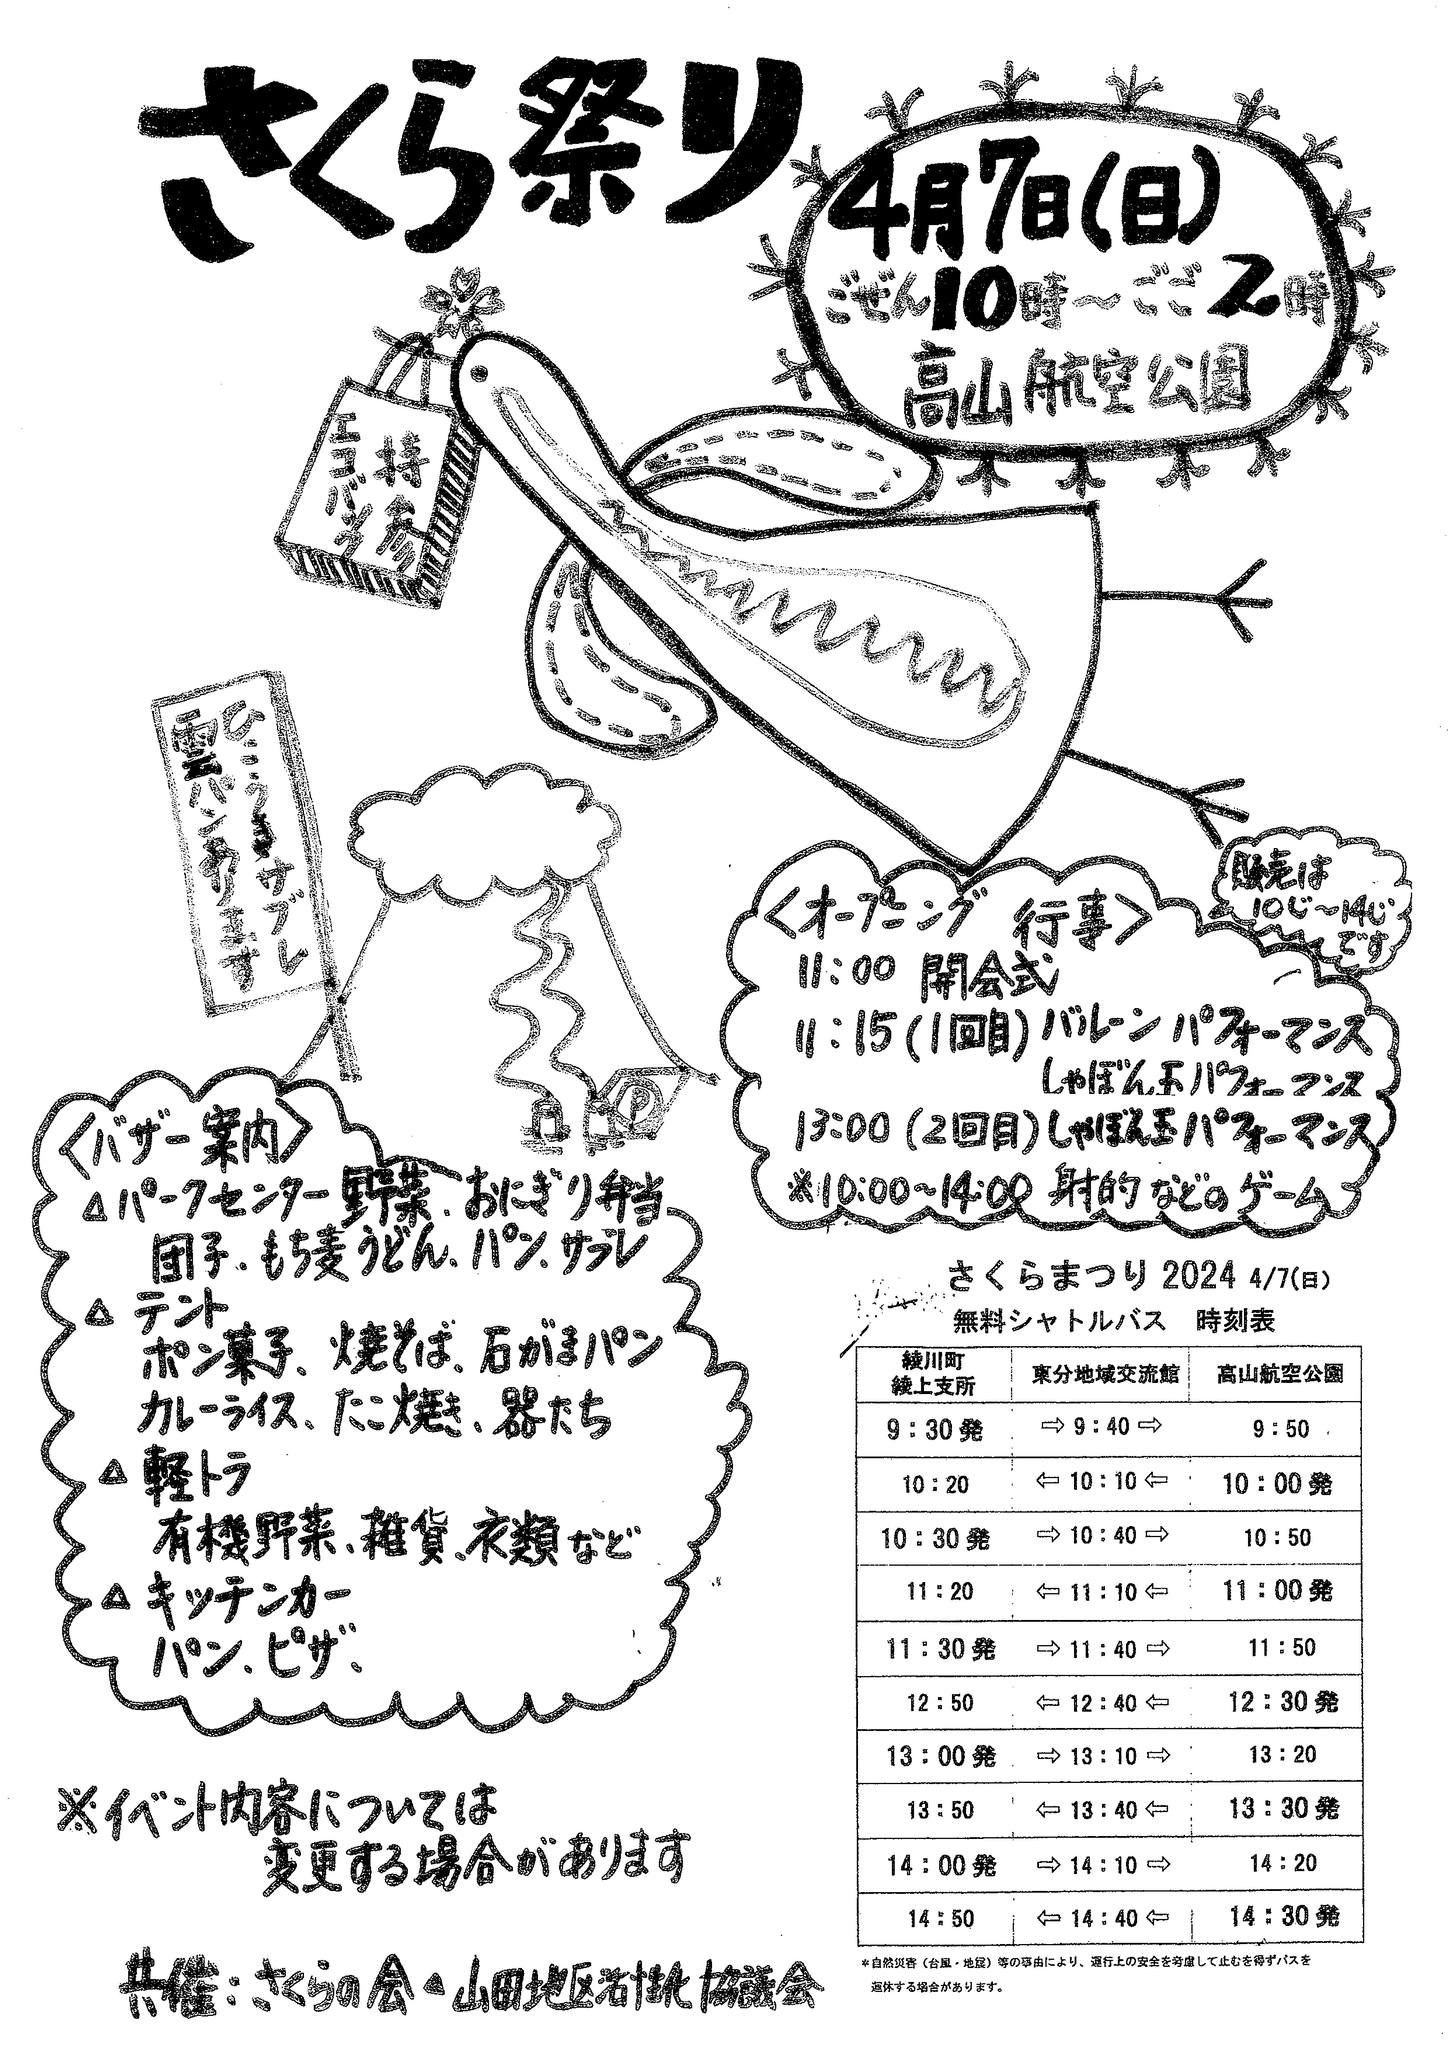 さくら祭り
4月7日(日)
ごぜん10時～ごご2時
高山航空公園
エコバッグ
持参
ひこうきサブレ
雲パンあります
販売は
10じ～14じ
です
<オープニング 行事>
11:00 開会式
11:15(1回目)バルーンパフォーマンス
しゃぼん玉パフォーマンス
13:00(2回目)しゃぼん玉パフォーマンス
※10:00～14:00 射的などのゲーム
P
<バザー案内>
△パークセンター野菜、おにぎり弁当
団子、もち麦うどん、パン、サブレ
△テント
ポン菓子、焼そば、石がまパン
カレーライス、たこ焼き、器たち
△軽トラ
有機野菜、雑貨、衣類など
△キッチンカー
パン、ピザ、
※イベント内容については
変更する場合があります
共催:さくらの会▲山田地区活性化協議会
さくらまつり 2024 4/7(日)
無料シャトルバス 時刻表
綾川町 綾上支所 東分地域交流館 高山航空公園
9:30発 ⇨9:40⇨ 9:50
10:20 ⇦10:10⇦ 10:00発
10:30発 ⇨10:40⇨ 10:50
11:20 ⇦11:10⇦ 11:00発
11:30発 ⇨11:40⇨ 11:50
12:50 ⇦12:40⇦ 12:30発
13:00発 ⇨13:10⇨ 13:20
13:50 ⇦13:40⇦ 13:30発
14:00発 ⇨14:10⇨ 14:20
14:50 ⇦14:40⇦ 14:30発
*自然災害(台風・地震)等の事由により、運行上の安全を考慮して止むを得ずバスを
運休する場合があります。